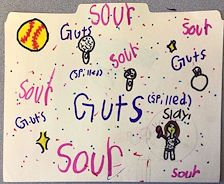 sour
Guts
(spilled)
sour
Sour
Guts
sour
Guts
Guts (spilled)
Slay!
sour
sour